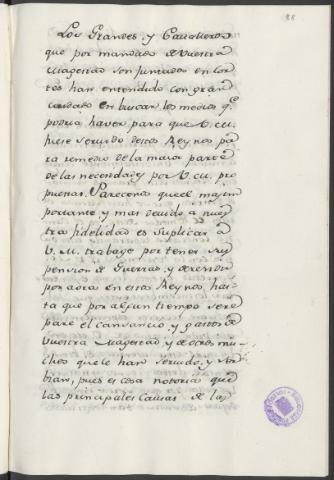 88
Los Grandes, y Cavalleros
que por mandado de Vuestra
Magestad son juntados en Cor
tes han entendido con gran
cuidado en buscar los medios q.e
podria haver para que V. M.
fuese servido destos Reynos pa
ra remedio de la maior parte
de las necesidades por V. M. pro
puestas. Parecenos que el mas im
portante, y mas devido a nues
tra fidelidad es suplicar a
V. M. trabaje por tener sus
pension de Guerras, y de residir
por aora en estos Reynos, has
ta que por algun tiempo se re
pare el cansancio, y gastos de
Vuestra Magestad, y de otros mu-
chos que le han servido, y ser
biran, pues es cosa notoria que
las principales causas de las